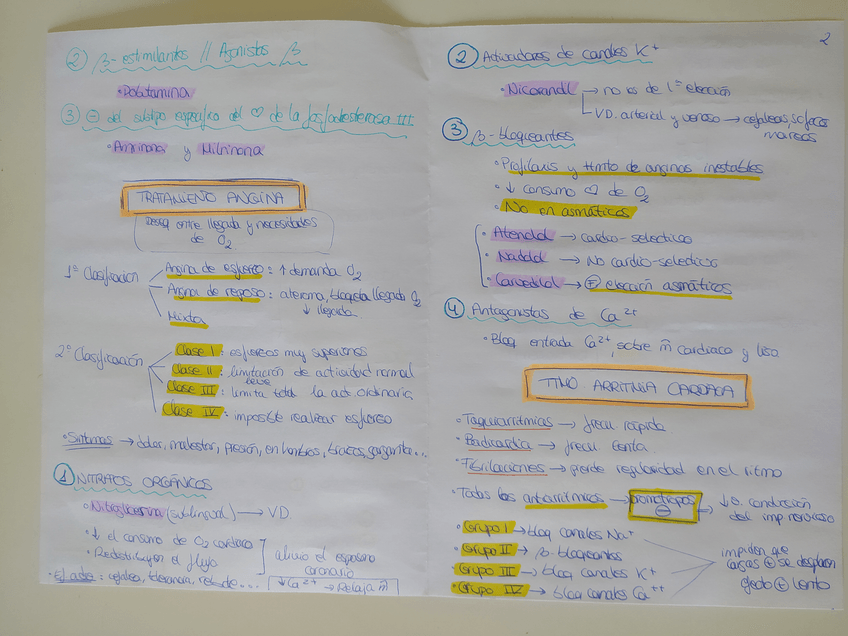 ② β-estimulantes // Agonistas β
• Dobutamina
③ ⊖ del subtipo específico del ♡ de la fosfodiesterasa III
• Amrinona y Milrinona
TRATAMIENTO ANGINA
Deseq entre llegada y necesidades
de O2
1ª Clasificación
Angina de esfuerzo: ↑ demanda O2
Angina de reposo: ateroma, bloquea llegada O2
↓ llegada
Mixta
2ª Clasificación
Clase I: esfuerzos muy superiores
Clase II: limitación leve de actividad normal
Clase III: limita total la act. ordinaria
Clase IV: imposible realizar esfuerzo
• Síntomas → dolor, malestar, presión, en hombros, brazos, garganta...
① NITRATOS ORGÁNICOS
• Nitroglicerina (sublingual) → V.D.
• ↓ el consumo de O2 cardiaco
• Redistribuyen el flujo
alivio el espasmo
coronario
• El adv: cefalea, tolerancia, rebote....
↓ Ca2+ → Relaja m̃
2
② Activadores de canales K+
• Nicorandil → no los de 1ª elección
V.D. arterial y venoso → cefaleas, sofocos
mareos
③ β-bloqueantes
• Profilaxis y ttmto de anginas inestables
• ↓ consumo ♡ de O2
• No en asmáticos
• Atenolol → cardio-selectivo
• Nadolol → No cardio-selectivo
• Carvedilol → ⊕ elección asmáticos
④ Antagonistas de Ca2+
• Bloq entrada Ca2+, sobre m̃ cardiaco y liso
TTMO ARRITMIA CARDIACA
• Taquiarritmias → frecu rápida
• Bradicardia → frecu lenta
• Fibrilaciones → pierde regularidad en el ritmo
• Todos los antiarrítmicos → dromotropos ⊖ → ↓ a. conducción
del imp nervioso
• Grupo I → bloq canales Na+
• Grupo II → β-bloqueantes
• Grupo III → bloq canales K+
• Grupo IV → bloq canales Ca++
impiden que
cargas ⊕ se desplacen
⊕ lento